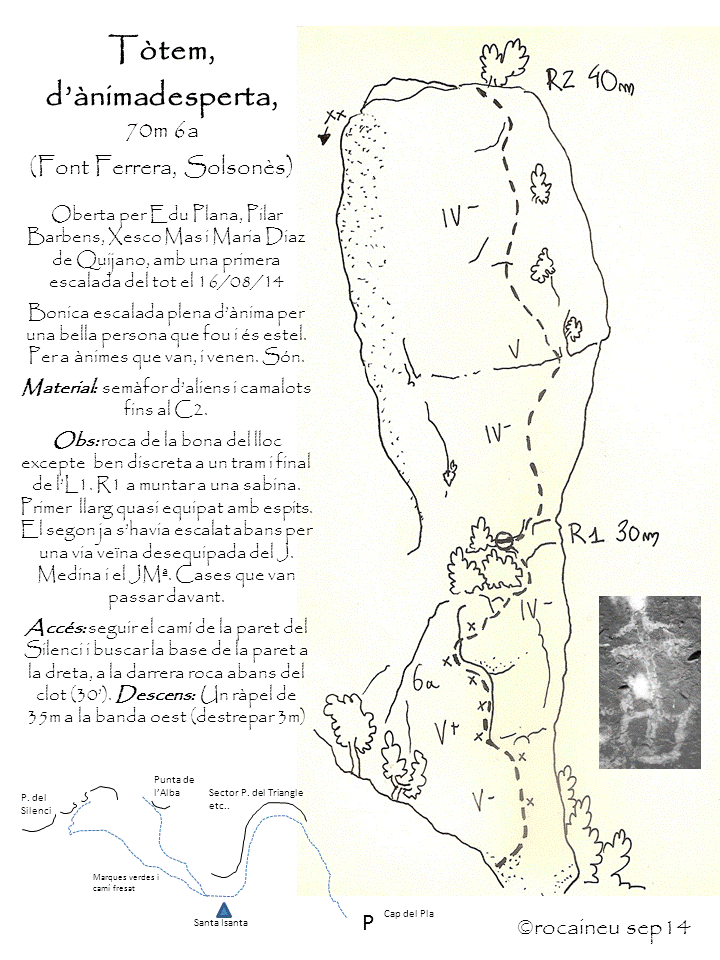 Tòtem,
d'ànimadesperta,
70m 6a
(Font Ferrera, Solsonès)
Oberta per Edu Plana, Pilar
Barbens, Xesco Mas i Maria Díaz
de Quijano, amb una primera
escalada del tot el 16/08/14
Bonica escalada plena d'ànima per
una bella persona que fou i és estel.
Per a ànimes que van, i venen. Són.
Material: semàfor d'aliens i camalots
fins al C2.
Obs: roca de la bona del lloc
excepte ben discreta a un tram i final
de l'L1. R1 a muntar a una sabina.
Primer llarg quasi equipat amb espits.
El segon ja s'havia escalat abans per
una via veïna desequipada del J.
Medina i el JMª. Cases que van
passar davant.
Accés: seguir el camí de la paret del
Silenci i buscar la base de la paret a
la dreta, a la darrera roca abans del
clot (30'). Descens: Un ràpel de
35m a la banda oest (destrepar 3m)
R2 40m
xx
IV-
V
IV-
R1 30m
IV-
x
x
6a
x
x
V+
x
x
V-
x
P. del
Silenci
Punta de
l'Alba
Sector P. del Triangle
etc..
Marques verdes i
camí fresat
Santa Isanta
P
Cap del Pla
©rocaineu sep14